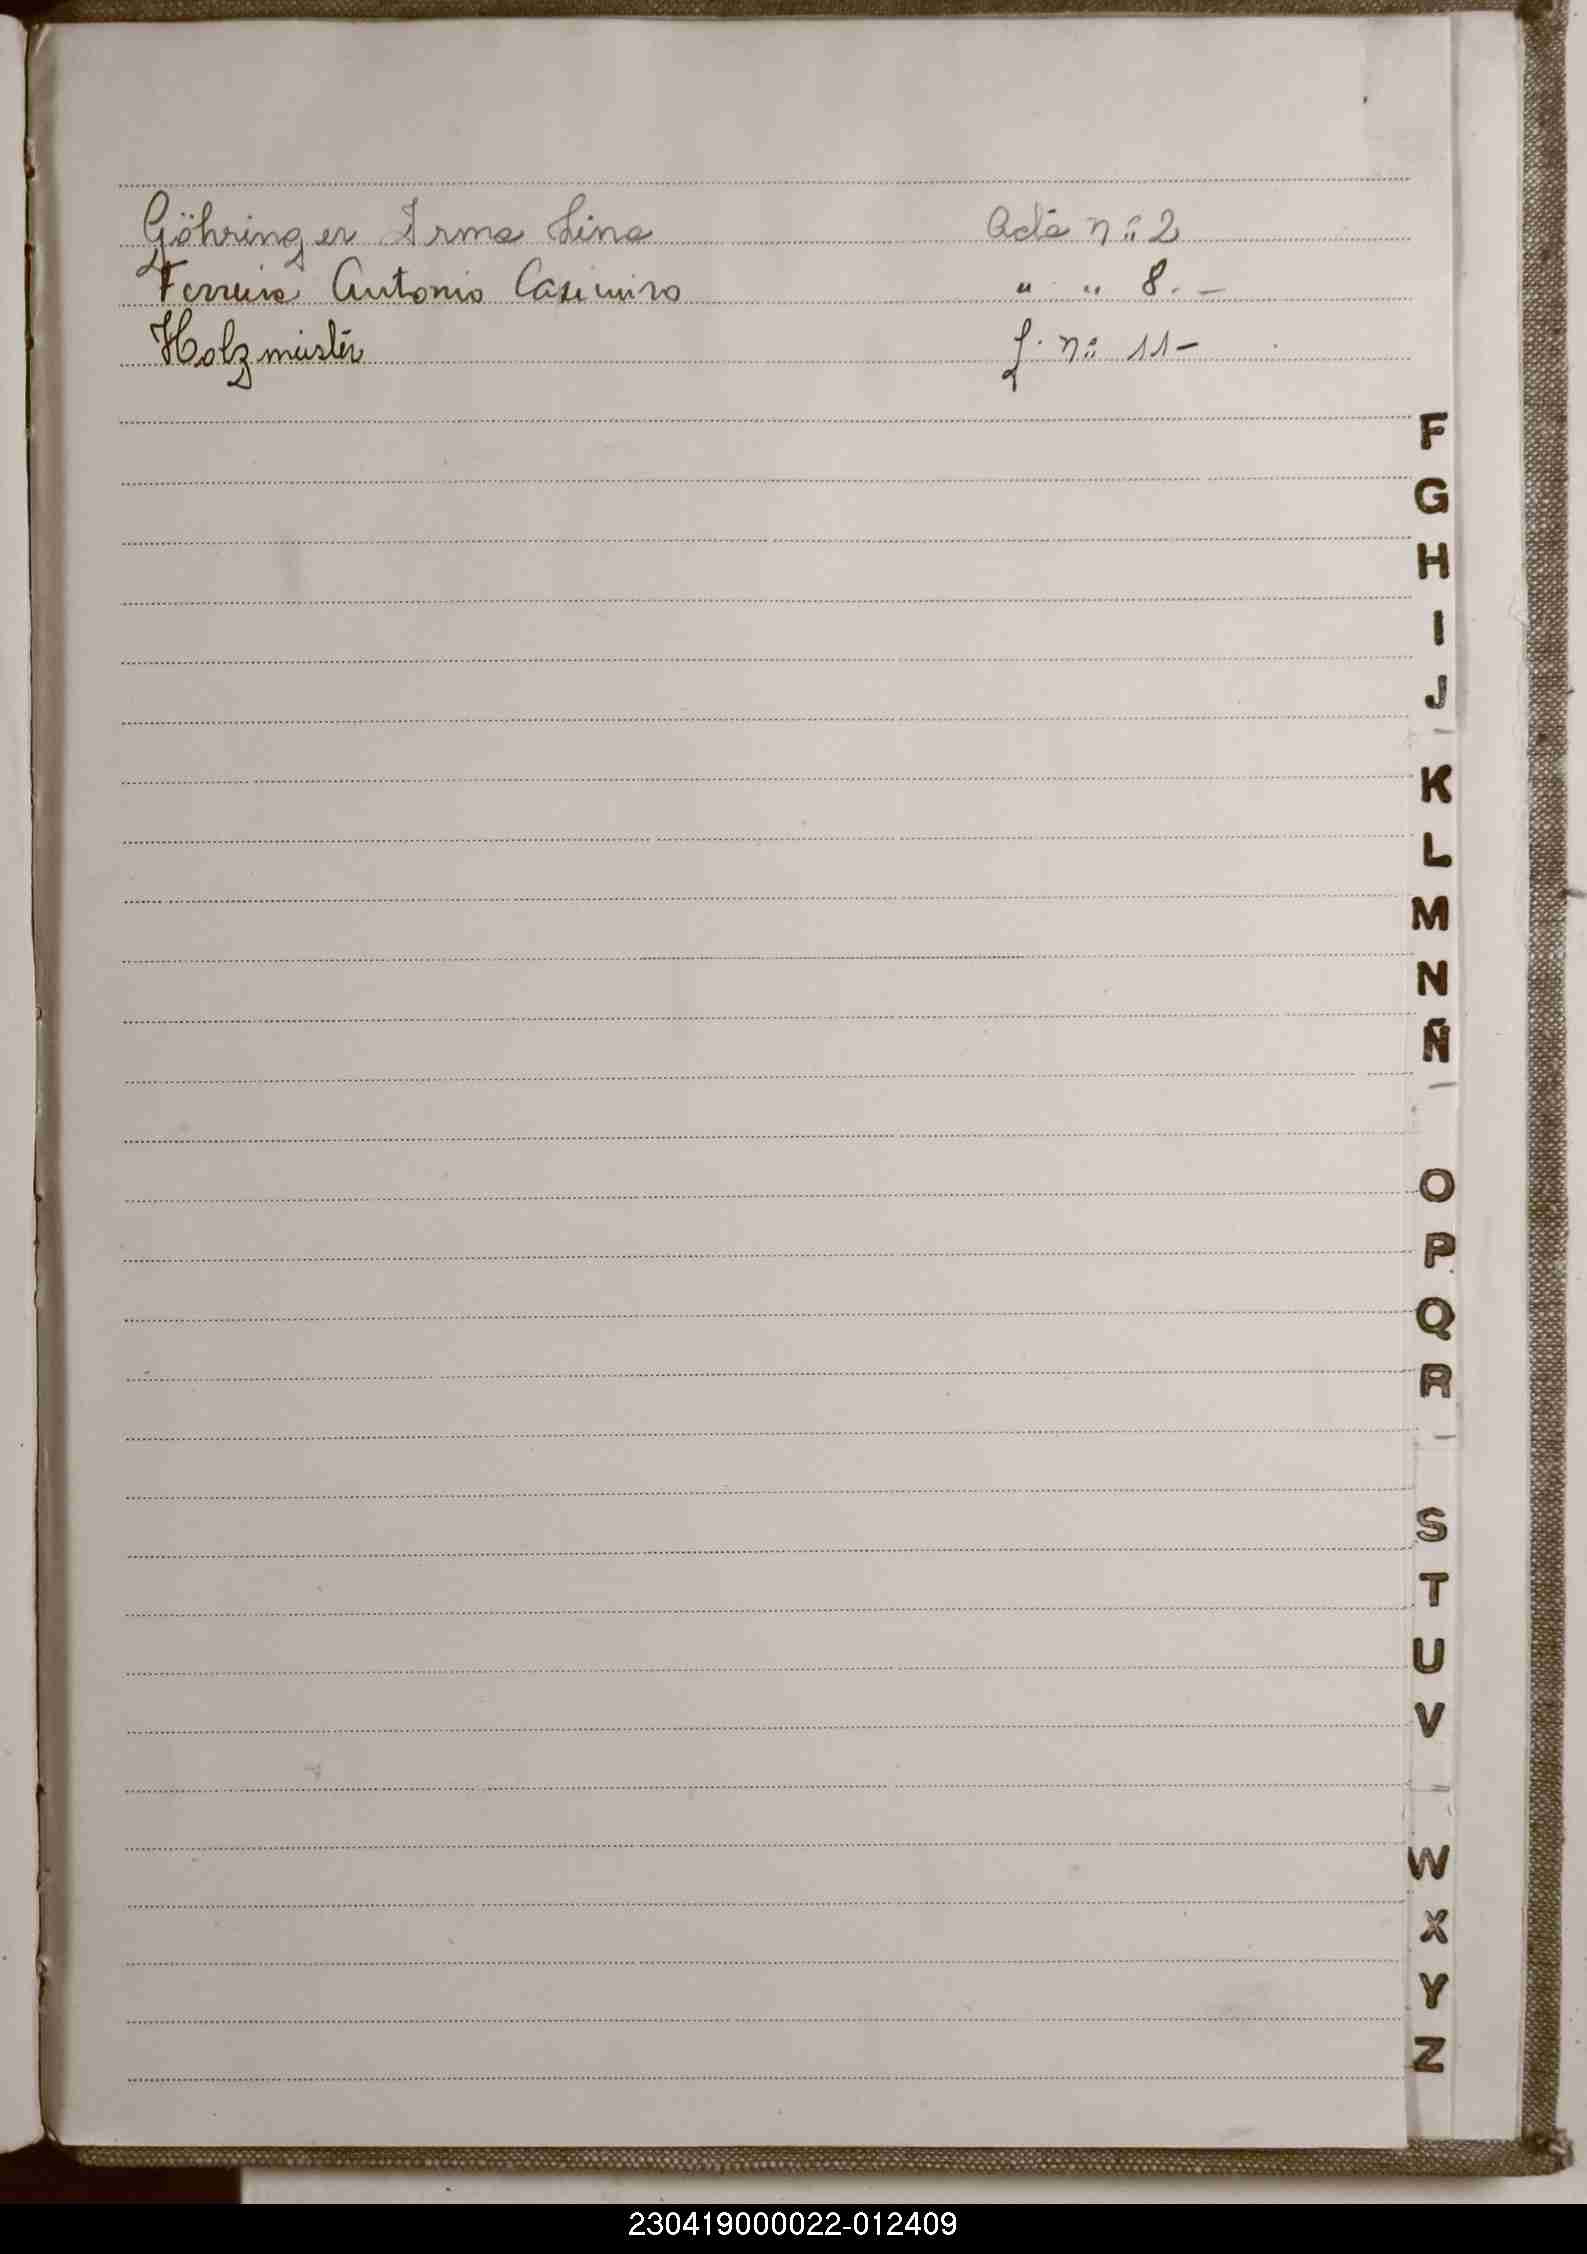 Göhringer Irma Lina Acta nº 2
Ferreira Antonio Casimiro " " 8.-
Holzmeister f. nº 11-
F
G
H
I
J
K
L
M
N
Ñ
O
P
Q
R
S
T
U
V
W
X
Y
Z
230419000022-012409